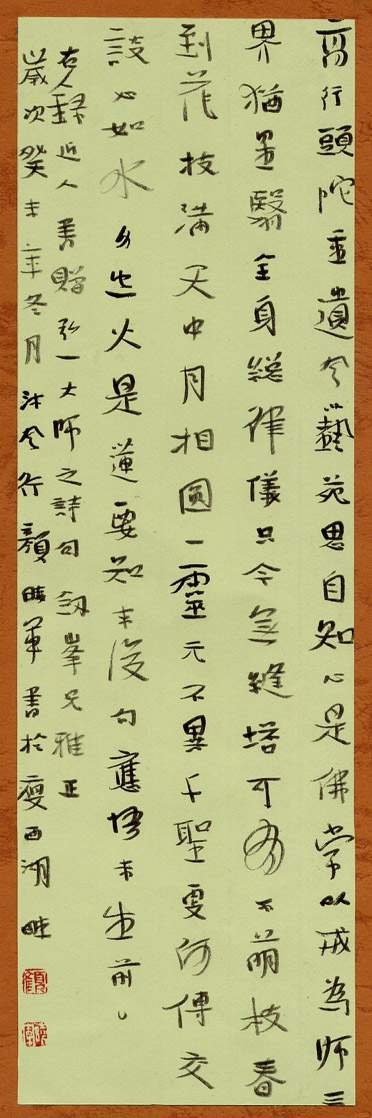 高行頭陀重遺風藝苑思自知心是佛常以戒為師三
界猶星翳全身總律儀只今無縫塔可有不萌枝春
到花枝滿天中月相圓一靈元不異千聖更何傳交
談心如水身火是蓮要知末後句應悟未生前
右錄近人書贈弘一大師之詩句劍峯兄雅正
歲次癸未年冬月行顏軍書於瘦西湖畔